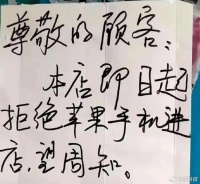 尊敬的顾客:
本店即日起
拒绝苹果手机进
店,望周知。